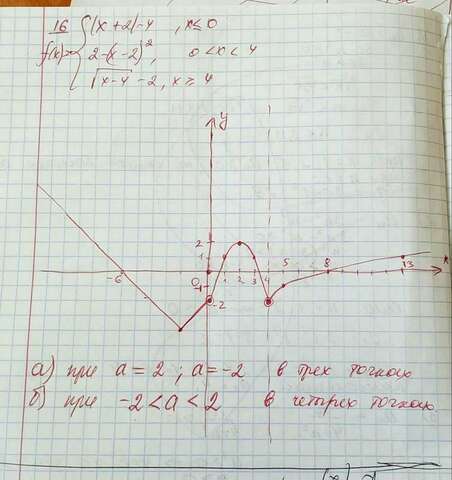 16 { |x+2|-4 , x≤0
f(x)= { 2-(x-2)², 0<x<4
{ √x-4 -2, x≥4
y
2
1
-6 0 1 2 3 4 5 8 13 x
-1
-2
а) при a=2 ; a=-2 в трех точках
б) при -2<a<2 в четырех точках.